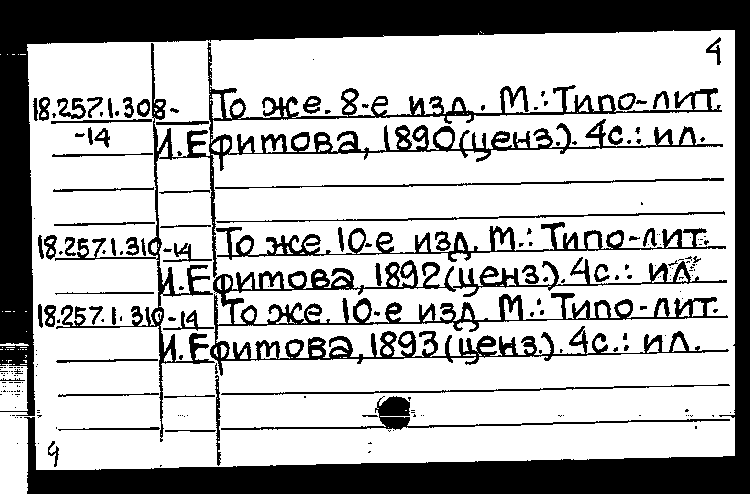 4
18.257.1.308- То же. 8-е изд. М.: Типо-лит.
-14 И. Ефитова, 1890 (ценз.). 4с.: ил.
18.257.1.310-14 То же. 10-е изд. М.: Типо-лит.
И. Ефитова, 1892 (ценз.). 4с.: ил.
18.257.1.310-14 То же. 10-е изд. М.: Типо-лит.
И. Ефитова, 1893 (ценз.). 4с.: ил.
9